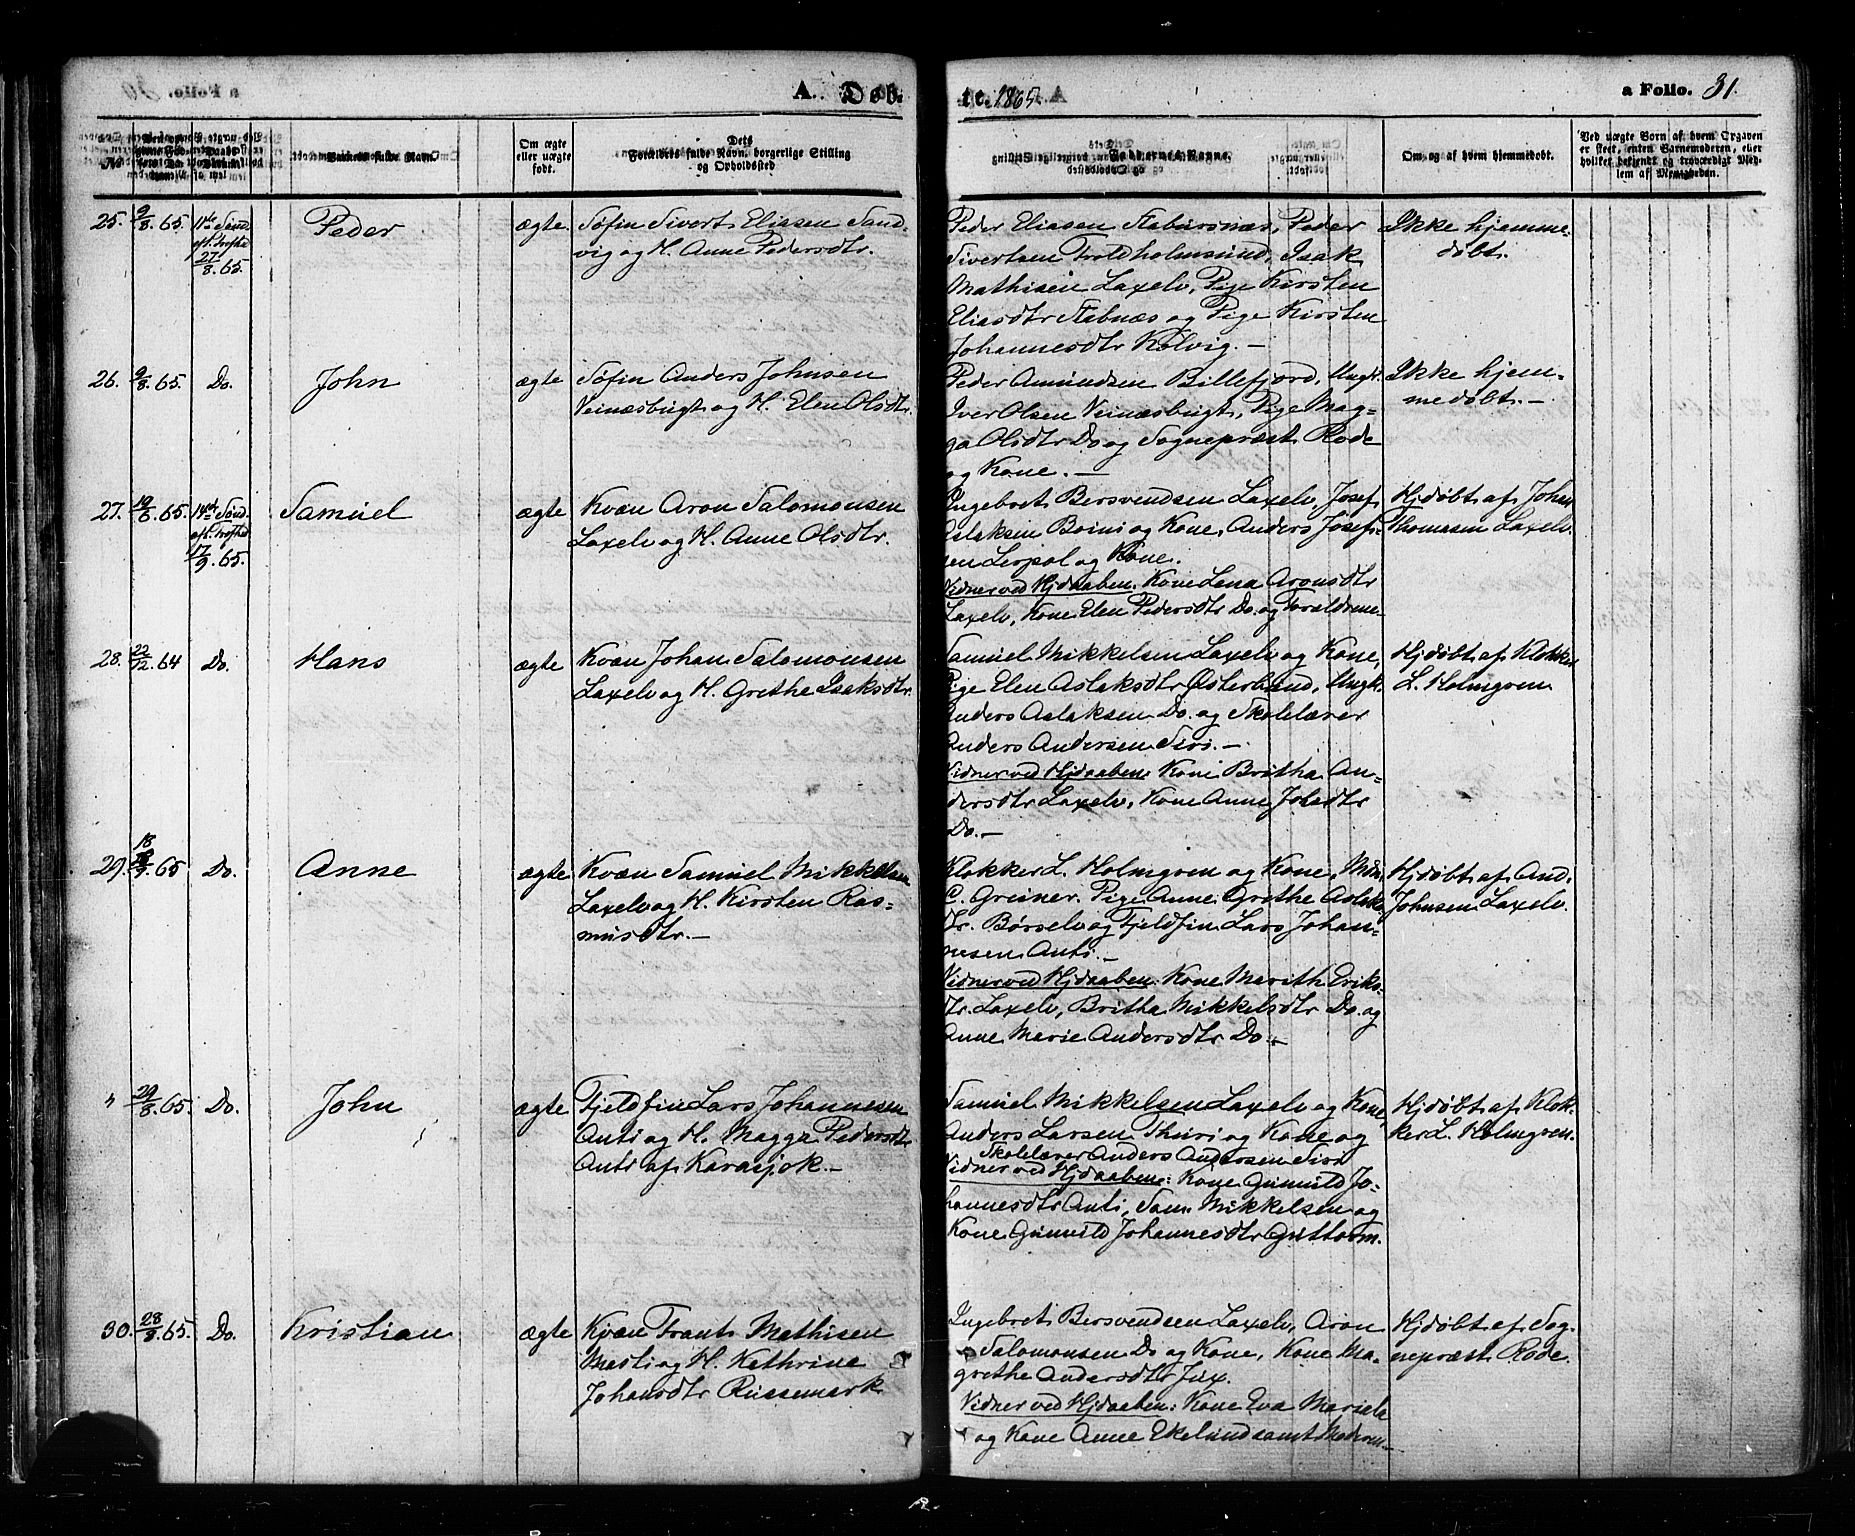 A. Døb-
te. 1865.
a Folio. 31.
No
Om ægte
eller uægte
født.
Dets
Forældres fulde Navn, borgerlige Stilling
og Opholdsted
Faddernes Navne.
Om og af hvem hjemmedøbt.
Ved uægte Børn af hvem Opgaven
er skeet, enten Barnemoderen, eller
hvilket bekjendt og troværdigt Med-
lem af Menigheden.
25. 9/8. 65. 11te Sønd.
eft. Trefhd
27/8. 65.
Peder
ægte
Søfin Sivert Eliasen Sand-
vig og H. Anne Pedersdtr.
Peder Eliasen Stabursnæs, Peder
Sivertsen Troldholmsund, Isak
Mathisen Laxelv, Pige Kirsten
Eliasdtr Stabnæs og Pige Kirsten
Johannesdtr Kolvig. —
Ikke hjemme-
døbt.
26. 9/8. 65. Do.
John
ægte
Søfin Anders Johnsen
Veinæsbugt og H. Elen Olsdtr.
Peder Amundsen Billefjord, Ungk.
Iver Olsen Veinæsbugt, Pige Mag-
ga Olsdtr Do og Sognepræst Rode
og Kone. —
Ikke hjem-
medøbt. —
27. 19/6. 65. 14de Sønd.
eft. Trefhd
17/9. 65.
Samuel
ægte
Kvæn Aron Salomonsen
Laxelv og H. Anne Olsdtr.
Ingebret Bersvendsen Laxelv, Josef
Aslaksen Boini og Kone, Anders Josef-
sen Lerpol og Kone.
Vidner ved Hjdaaben: Kone Lena Aronsdtr
Laxelv, Kone Elen Pedersdtr Do. og Forældrene
Hjdøbt af Johan
Thomasen Laxelv.
28. 22/12. 64 Do.
Hans
ægte
Kvæn Johan Salomonsen
Laxelv og H. Grethe Isaksdtr.
Samuel Mikkelsen Laxelv og Kone,
Pige Elen Aslaksdtr Østerbund, Ungk.
Anders Aslaksen Do. og Skolelærer
Anders Andersen Siri. —
Vidner ved Hjdaaben: Kone Britha An-
dersdtr Laxelv, Kone Anne Johsdtr
Do. —
Hjdøbt af Klokker
L. Holmgren
29. 18/9. 65 Do.
Anne
ægte
Kvæn Samuel Mikkelsen
Laxelv og H. Kirsten Ras-
musdtr. —
Klokker L. Holmgren og Kone, Mdm
C. Greiner, Pige Anne Grethe Aslaks-
dtr. Børselv og Fjeldfin Lars Johan-
nesen Anti. —
Vidner ved Hjdaaben: Kone Marith Eriks-
dtr. Laxelv, Britha Mikkelsdtr Do. og
Anne Marie Andersdtr Do. —
Hjdøbt af And.
Johnsen Laxelv.
" 29/8. 65. Do.
John
ægte
Fjeldfin Lars Johannesen
Anti og H. Magga Pedersdtr
Anti af Karasjok. —
Samuel Mikkelsen Laxelv og Kone,
Anders Larsen Thuri og Kone og
Skolelærer Anders Andersen Siri
Vidner ved Hjdaaben: Kone Gunvild Jo-
hannesdtr Anti, Sam. Mikkelsen og
Kone Gunvild Johannesdtr Guttorm.
Hjdøbt af Klok-
ker L. Holmgren.
30. 28/8. 65. Do.
Kristian
ægte
Kvæn Frant Mathisen
Mesti og H. Kathrine
Johansdtr Russemark
Ingebret Bersvendsen Laxelv, Aron
Salomonsen Do og Kone, Kone Ma-
grethe Andersdtr Jux.
Vidner ved Hjdaaben: Kone Eva Mariela
og Kone Anne Ekelund samt Moderen —
Hjdøbt af Sog-
nepræst Rode.